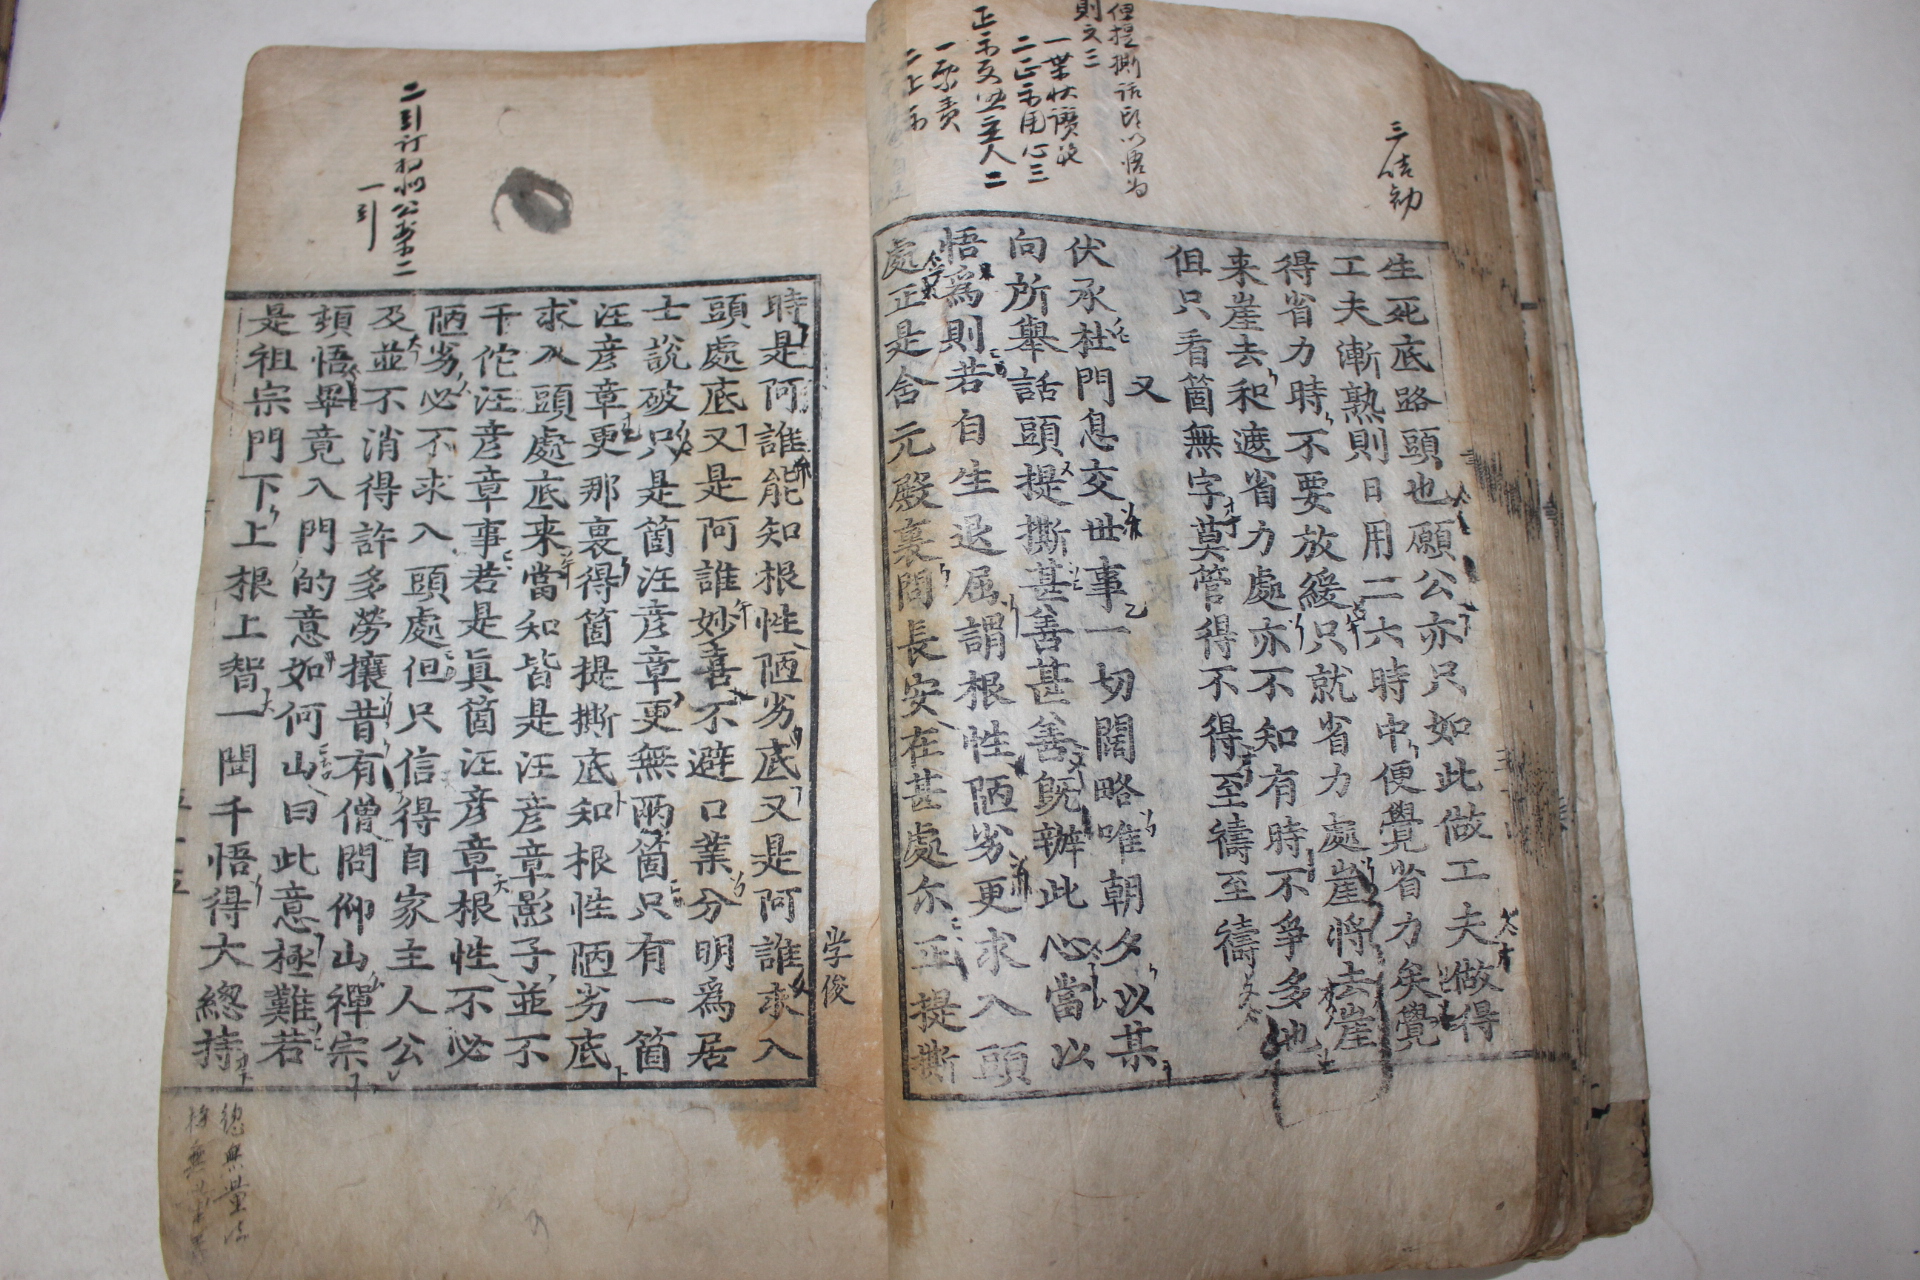 三結勧
但提撕話頭以悟為
則文三
二正示用心三
一累責
二上示
生死底路頭也願公亦只如此做工夫做得
工夫漸熟則日用二六時中便覺省力矣覺
得省力時不要放緩只就省力處崖將去崖
来崖去和遮省力處亦不知有時不爭多也
但只看箇無字莫管得不得至禱至禱
又
伏承杜門息交世事一切闊略唯朝夕以某
向所舉話頭提撕甚善甚善旣辦此心當以
悟為則若自生退屈謂根性陋劣更求入頭
處正是含元殿裏問長安在甚處尓正提撕
時是阿誰能知根性陋劣底又是阿誰求入
頭處底又是阿誰妙喜不避口業分明爲居
士說破只是箇汪彦章更無兩箇只有一箇
汪彦章更那裏得箇提撕底知根性陋劣底
求入頭處底来當知皆是汪彦章影子並不
干佗汪彦章事若是眞箇汪彦章根性不必
陋劣必不求入頭處但只信得自家主人公
及並不消得許多勞攘昔有僧問仰山禪宗
頓悟畢竟入門的意如何山曰此意極難若
是祖宗門下上根上智一聞千悟得大緫持
学俊
一引
五十五